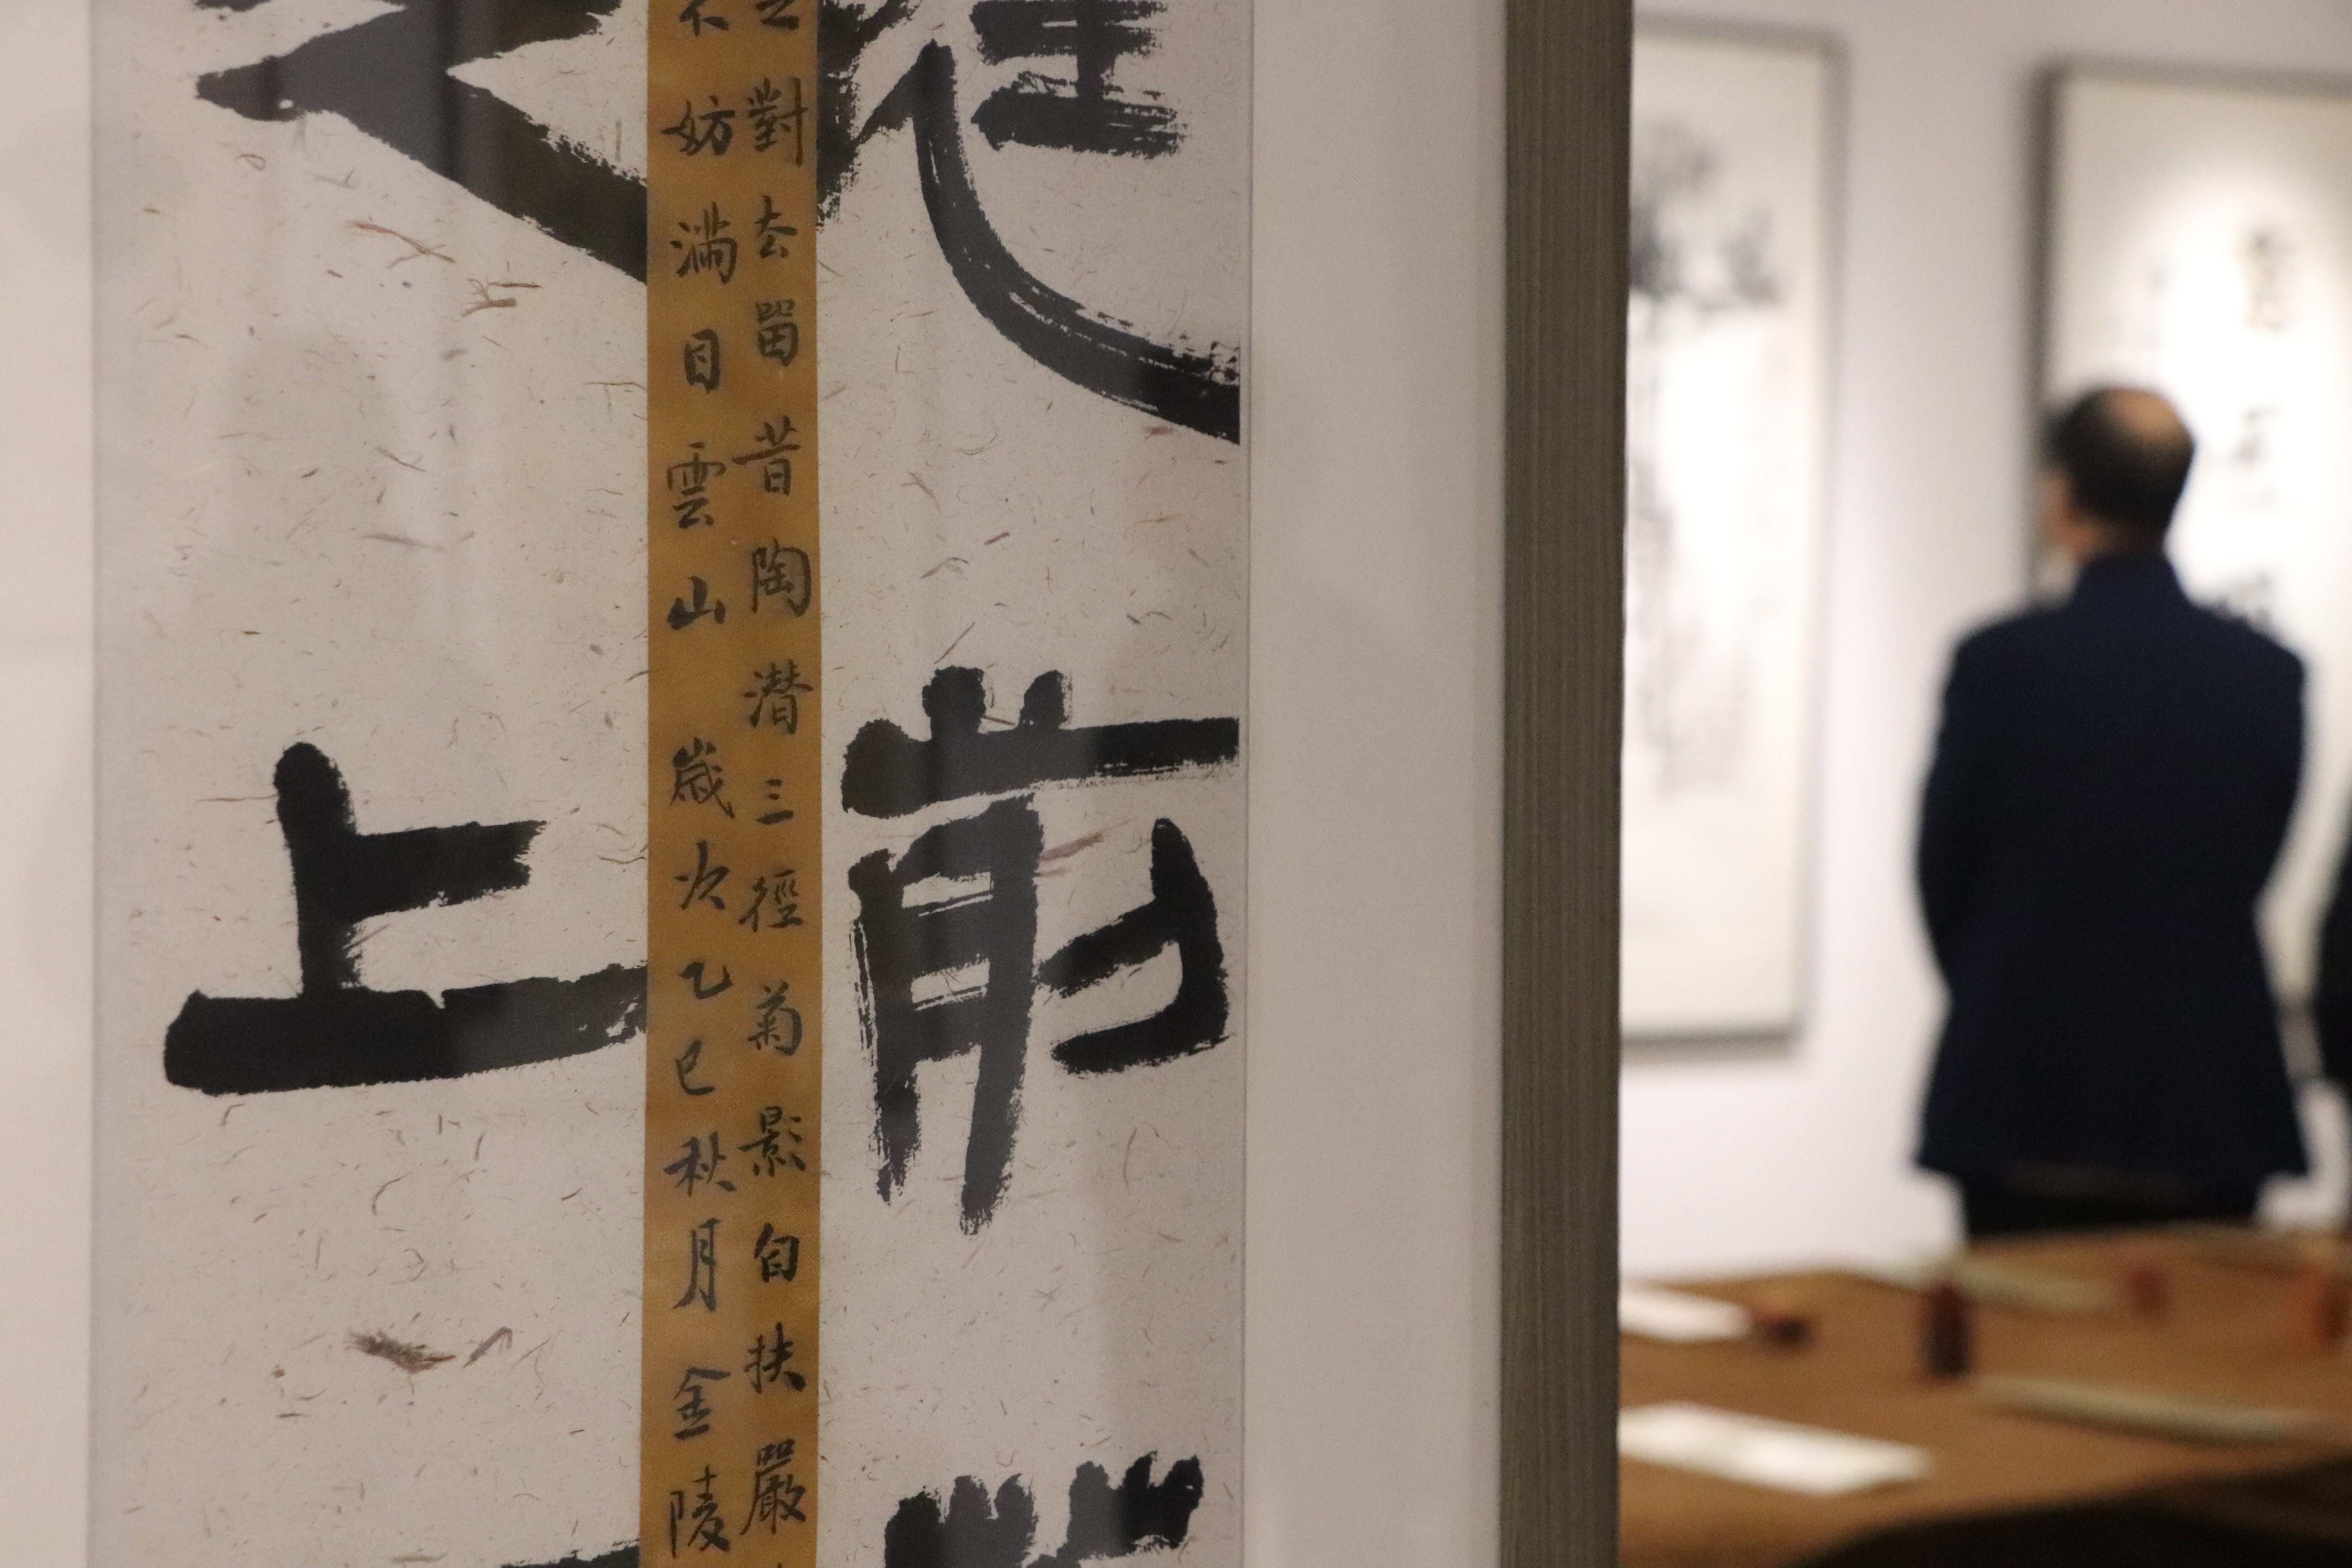 前
對去畱昔陶潛三徑菊影自扶嚴
不妨滿目雲山歲次乙巳秋月金陵
上